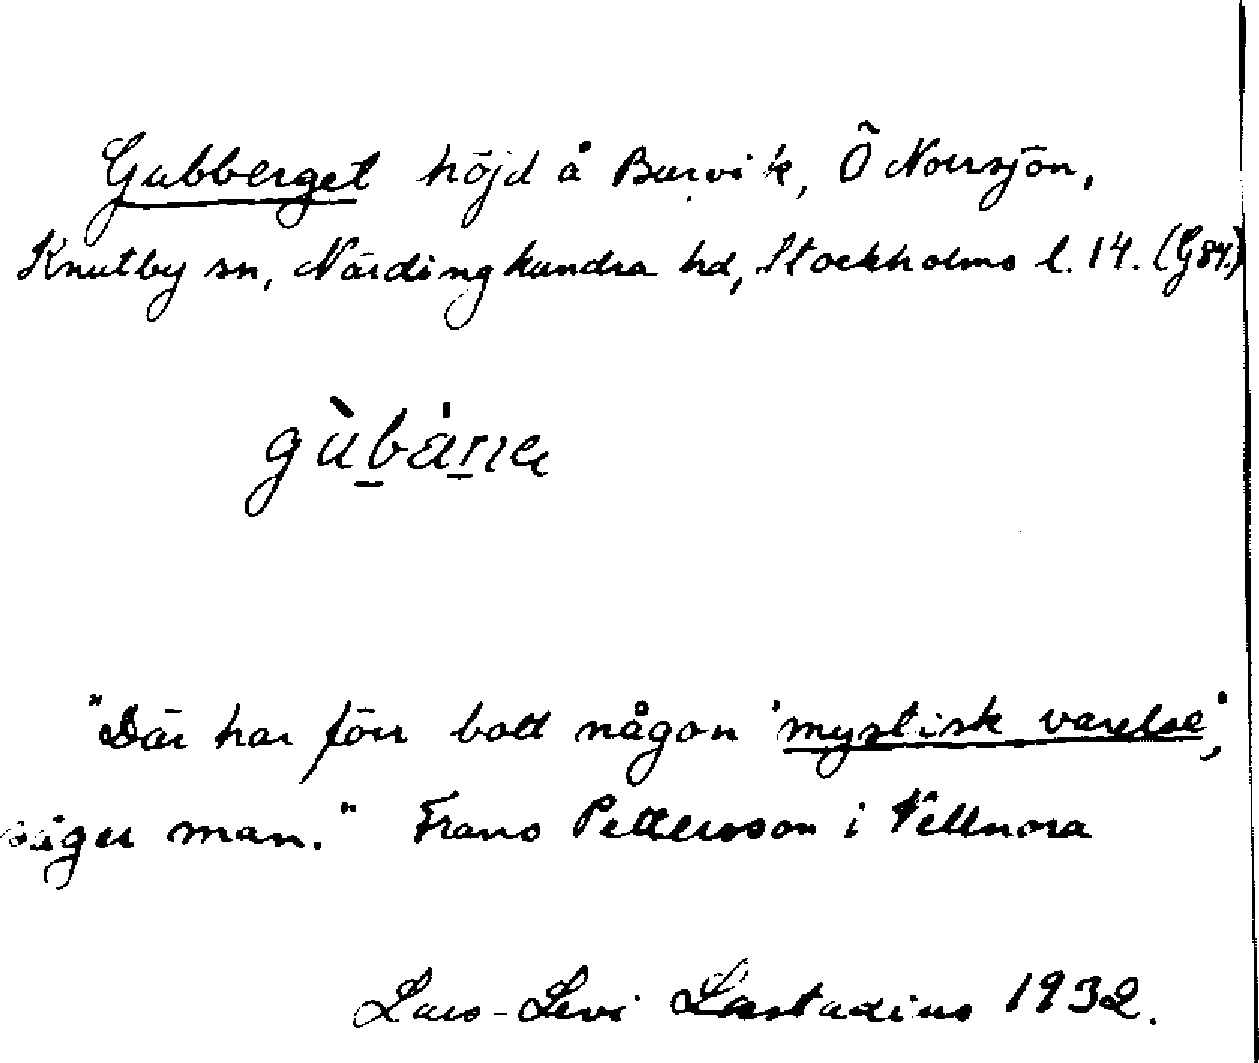 Gubberget höjd å Burvik, Ö Norrsjön,
Knutby sn, Närdinghundra hd, Stockholms l. 14. (G84.)
gùbárɳa
"Där har förr bott någon 'mystisk varelse',
säger man." Frans Pettersson i Vellnora
Lars-Levi Læstadius 1932.